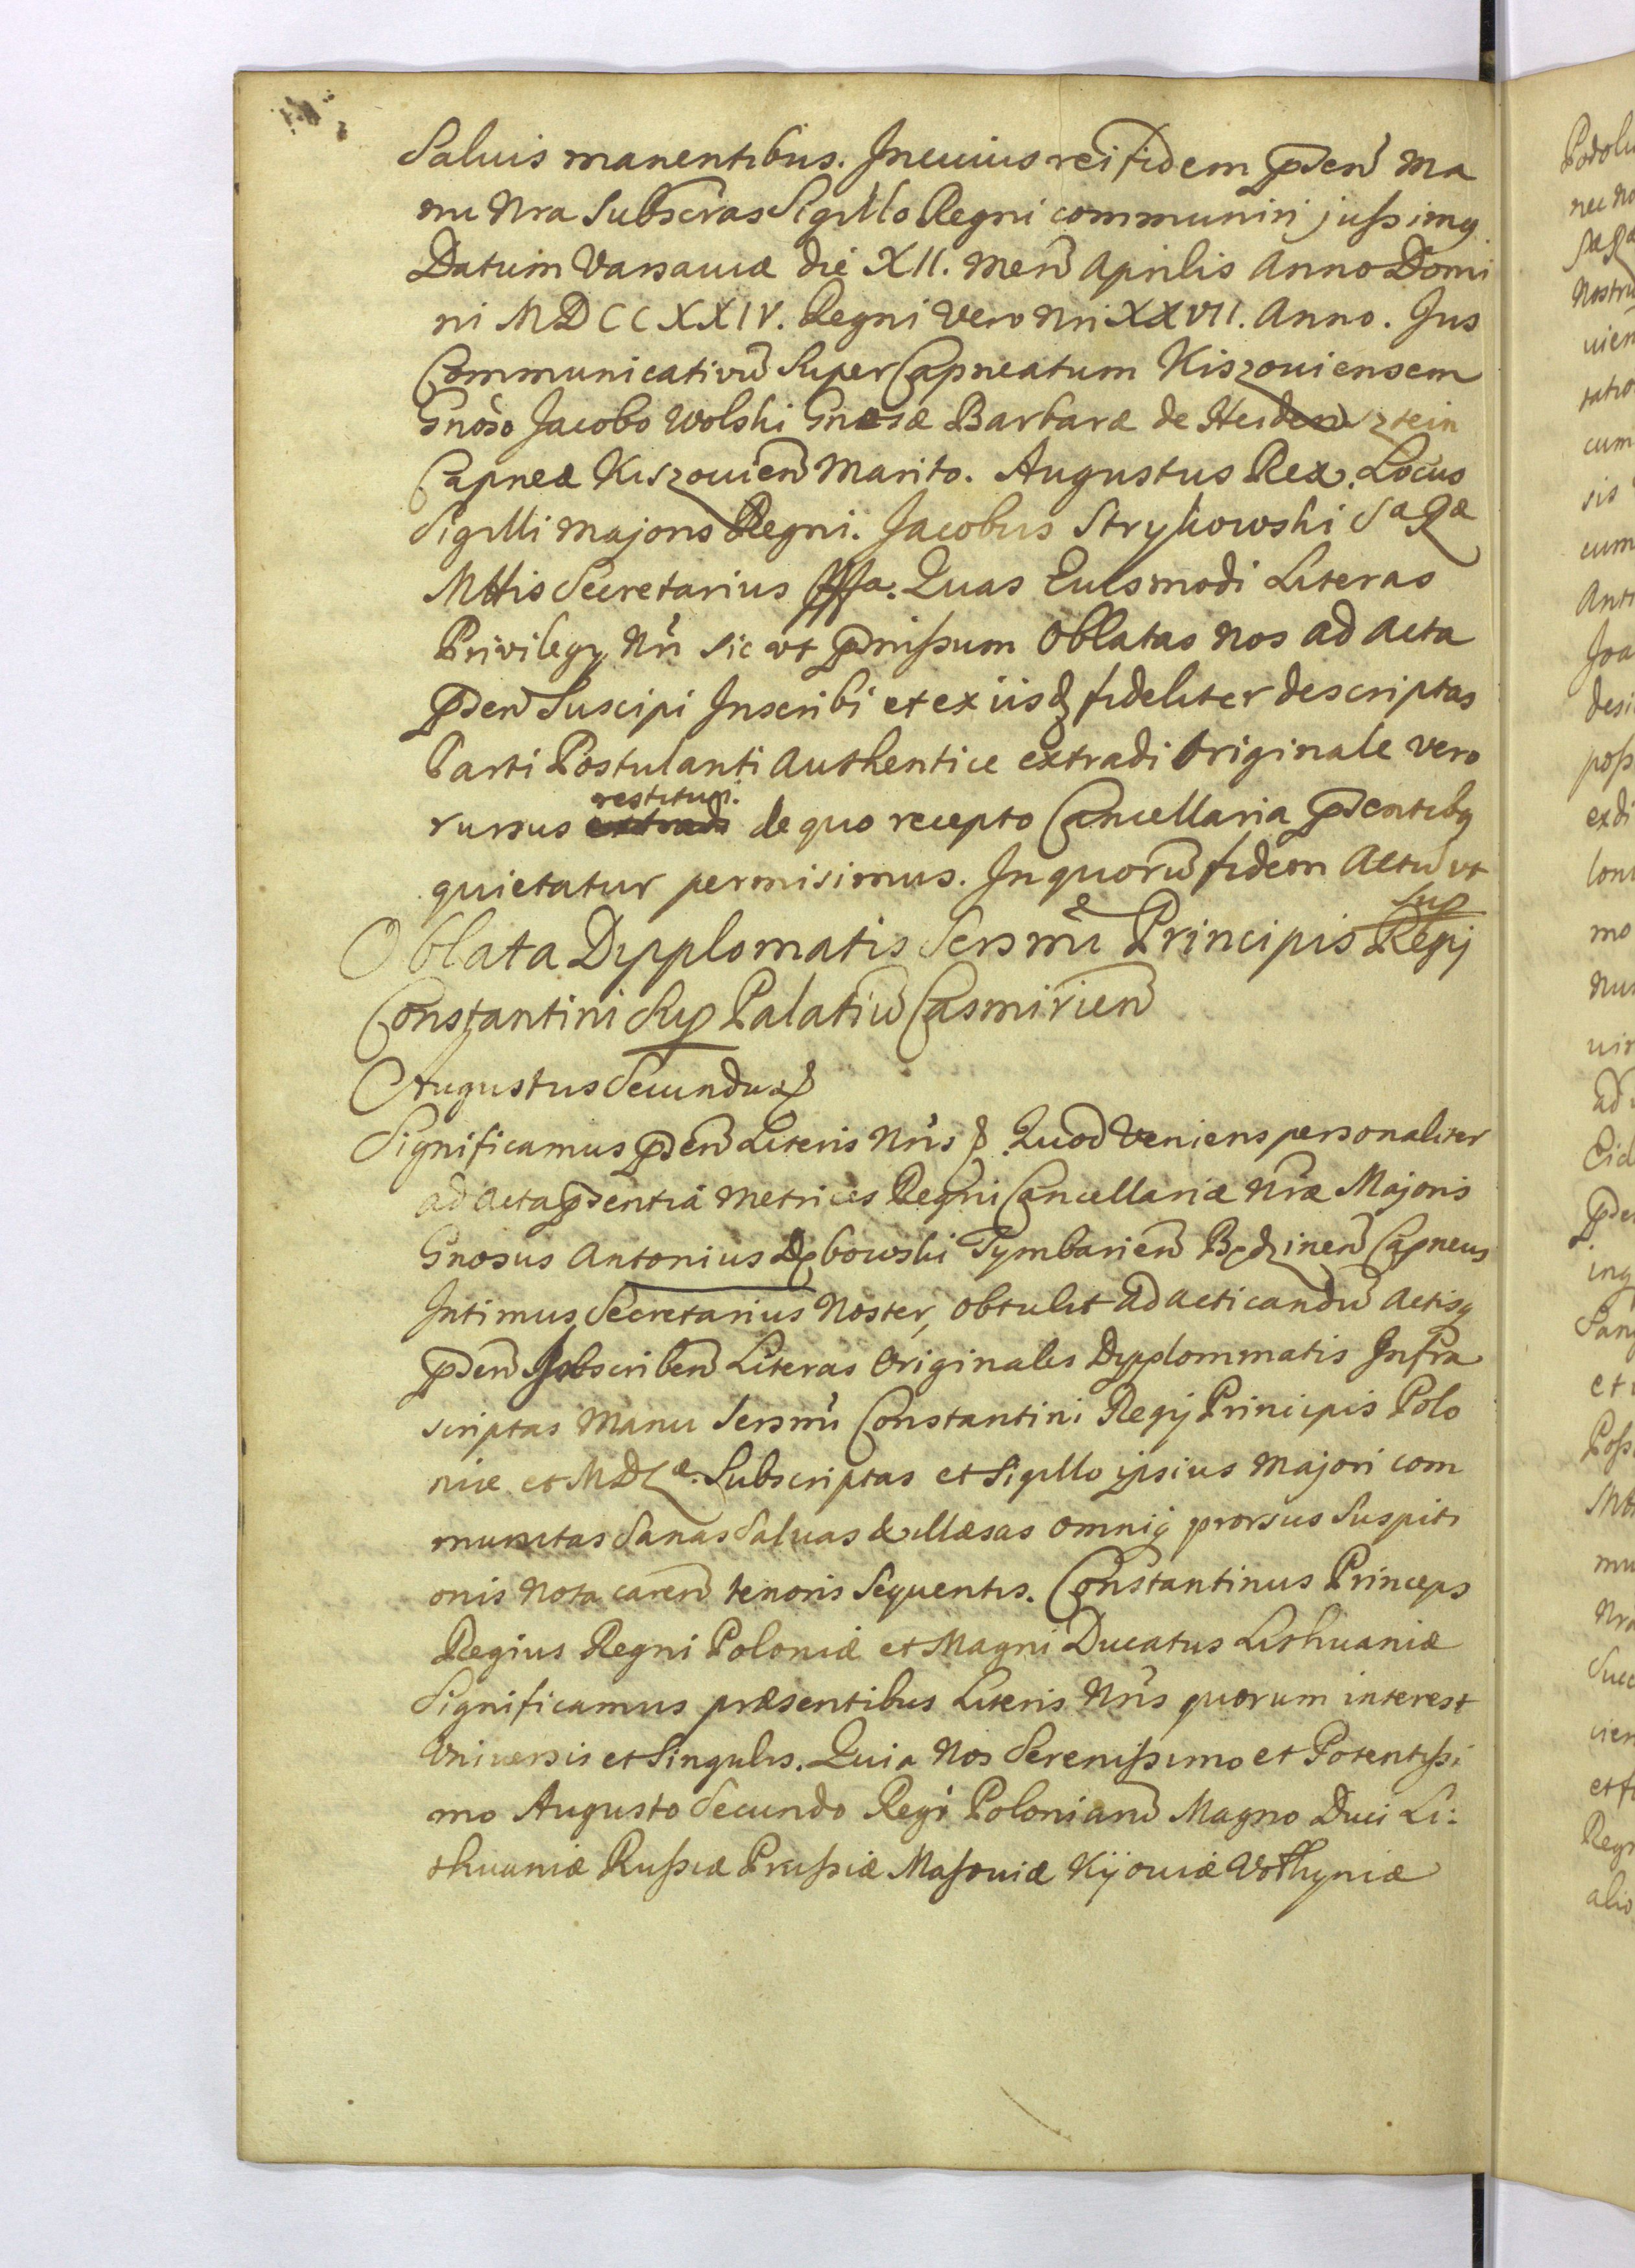 Saluis manentibus. Incuius rei fidem pden̄ Ma
nu Nra Subscras Sigillo Regni communiri jussimq
Datum Varsaviæ die XII. Men̄ Aprilis Anno Domi
ni MDCCXXIV. Regni Vero Nri XXVII. Anno. Jus
Communicativū Super Capneatum Kiszoviensem
Gnoso Jacobo Wolski Gnæsæ Barbaræ de Heidensztein
Capneæ Kiszovien̄ Marito. Augustus Rex. Locus
Sigilli Majoris Regni. Jacobus Strykowski Sæ Ræ
Mttis Secretarius Mppa. Quas Eiusmodi Literas
Privilegy Nri sic ut pmissum Oblatas Nos ad Acta
pden̄ Suscipi Inscribi et ex iisdq fideliter descriptas
Parti Postulanti Authentice extradi Originale vero
rursus extradi restitui. de quo recepto Cancellaria pdentibq
quietatur permisimus. In quorū fidem Actū ut Sup
Oblata Dypplomatis Sersmi Principis Regij
Constantini Sup Palatiū Casmirien̄
Augustus Secundus &
Significamus pden̄ Literis Nris & Quod Veniens personaliter
ad Acta pdentia Metrices Regni Cancellariæ Nræ Majoris
Gnosus Antonius Dębowski Tymbarien̄ Będzinen̄ Capneus
Intimus Secretarius Noster, obtulit ad acticandū Actisq
pden̄ Inscriben̄ Literas Originales Dypplommatis Infra
scriptas Manu Sersmi Constantini Regij Principis Polo
niæ et MDLæ. Subscriptas et Sigillo ipsius Majori com
munitas Sanas Saluas & illæsas omniq prorsus Suspiti
onis Nota caren̄ tenoris Sequentis. Constantinus Princeps
Regius Regni Poloniæ et Magni Ducatus Lithuaniæ
Significamus præsentibus Literis Nris quorum interest
Universis et Singulis. Quia Nos Serenissimo et Potentissi
mo Augusto Secundo Regi Polonian̄ Magno Duci Li:
thuaniæ Russiæ Prussiæ Masoviæ Kijoviæ Volhyniæ